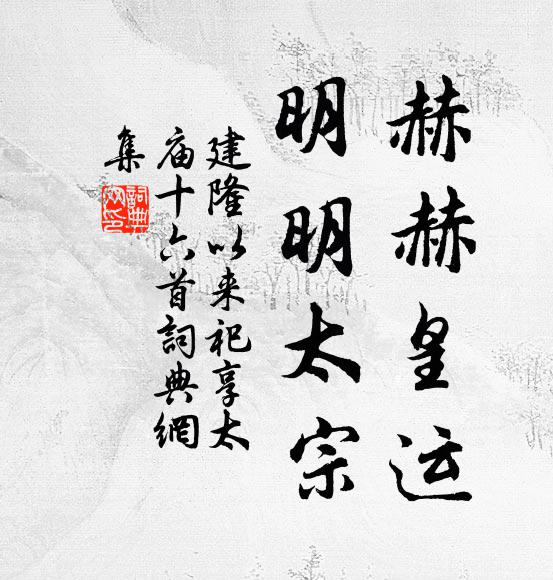 赫赫皇运
明明太宗
建隆以来祀享太
庙十六首詞典網
集
詞典網印